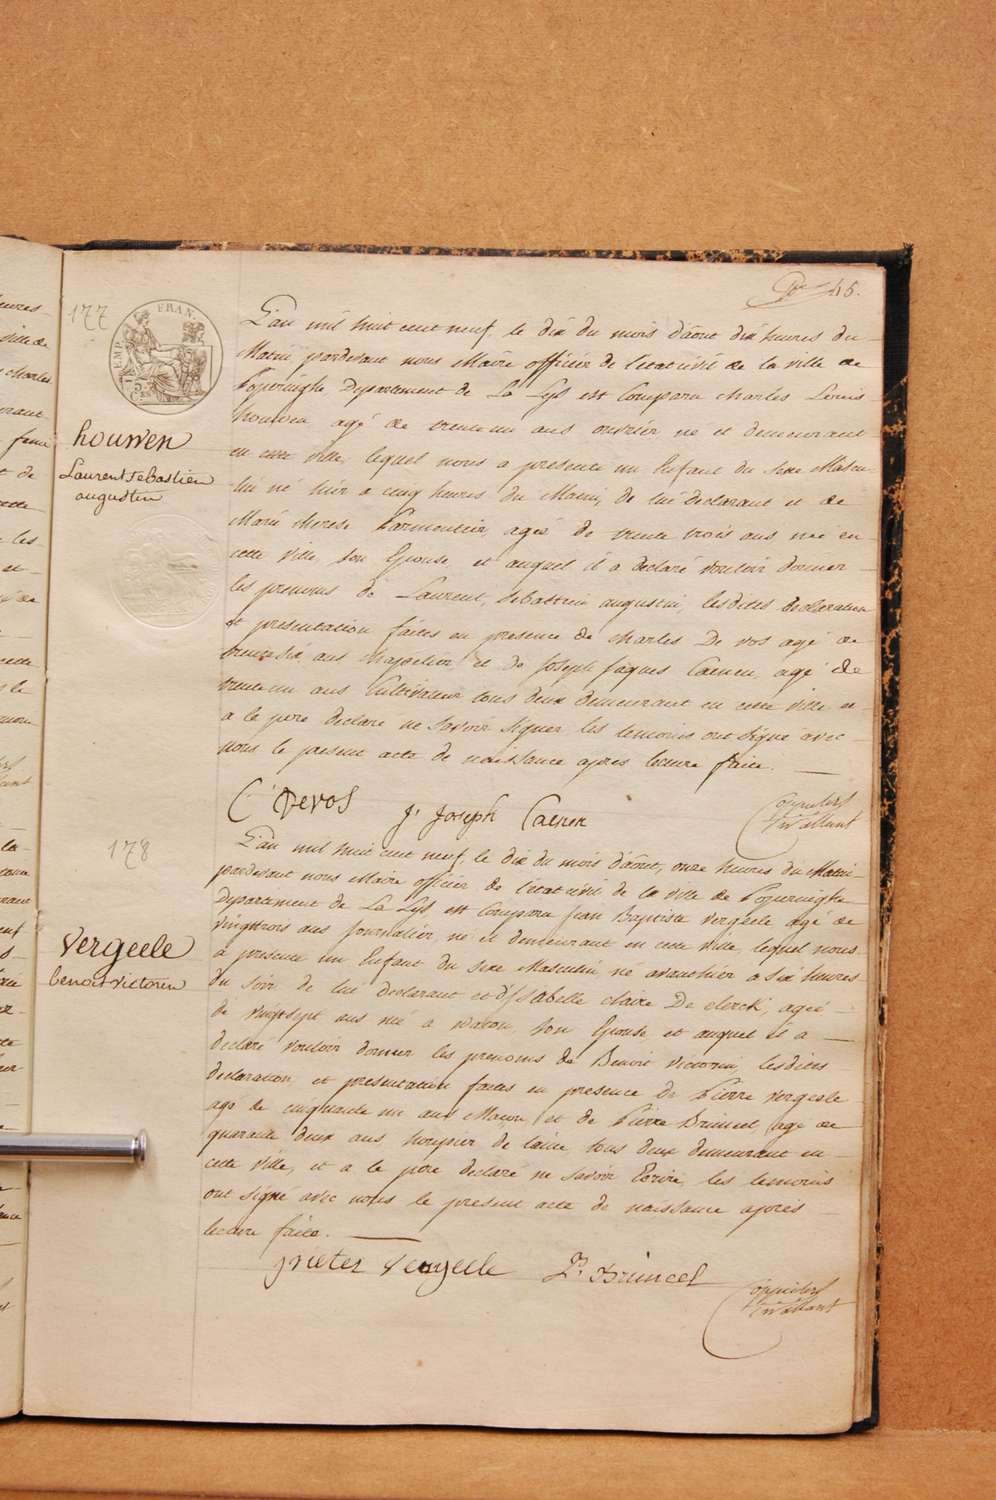 45.
177
TIMP. FRAN.
houwen
Laurent Sebastien
augustin
L'an mil huit cent neuf, le dix du mois d'août dix heures du
Matin pardevant nous Maire officier de l'état civil de la ville de
Poperinghe Departement de La Lys est Comparu Charles Louis
houwen, agé de trente un ans ouvrier né et demeurant
en cette ville, lequel nous a presenté un Enfant du sexe Mascu-
lin né hier a cinq heures du Matin, de lui declarant et de
Marie therese Parmentier, agée de trente trois ans née en
cette ville, son Epouse, et auquel il a declaré vouloir donner
les prenoms de Laurent, Sebastien augustin, lesdites declaration
et presentation faites en presence de Charles De vos agé de
trente six ans Chapelier, et de Joseph Jaques Caenen, agé de
trente un ans Cultivateur tous deux demeurant en cette ville et
a le pere declaré ne savoir signer les temoins ont signé avec
nous le present acte de naissance apres lecture faite.
C. Devos J. Joseph Caenen
178
vergeele
benoit victorin
L'an mil huit cent neuf, le dix du mois d'août, onze heures du Matin
pardevant nous Maire officier de l'état civil de la ville de Poperinghe
Departement de La Lys, est Comparu Jean Baptiste vergeele agé de
vingt trois ans Journalier, né et demeurant en cette ville, lequel nous
a presenté un Enfant du sexe Masculin né avant hier a six heures
du soir de lui declarant et d'Isabelle Claire De clerck, agée
de vingt sept ans née a watou, son Epouse, et auquel il a
declaré vouloir donner les prenoms de Benoit victorin, lesdites
declaration et presentation faites en presence de Pierre vergeele
agé de cinquante un ans Maçon, et de Pierre Bruneel agé de
quarante deux ans, houpier de laine, tous deux demeurant en
cette ville, et a le pere declaré ne savoir Ecrire, les temoins
ont signé avec nous le present acte de naissance apres
lecture faite.
pieter vergeele P. Bruneel